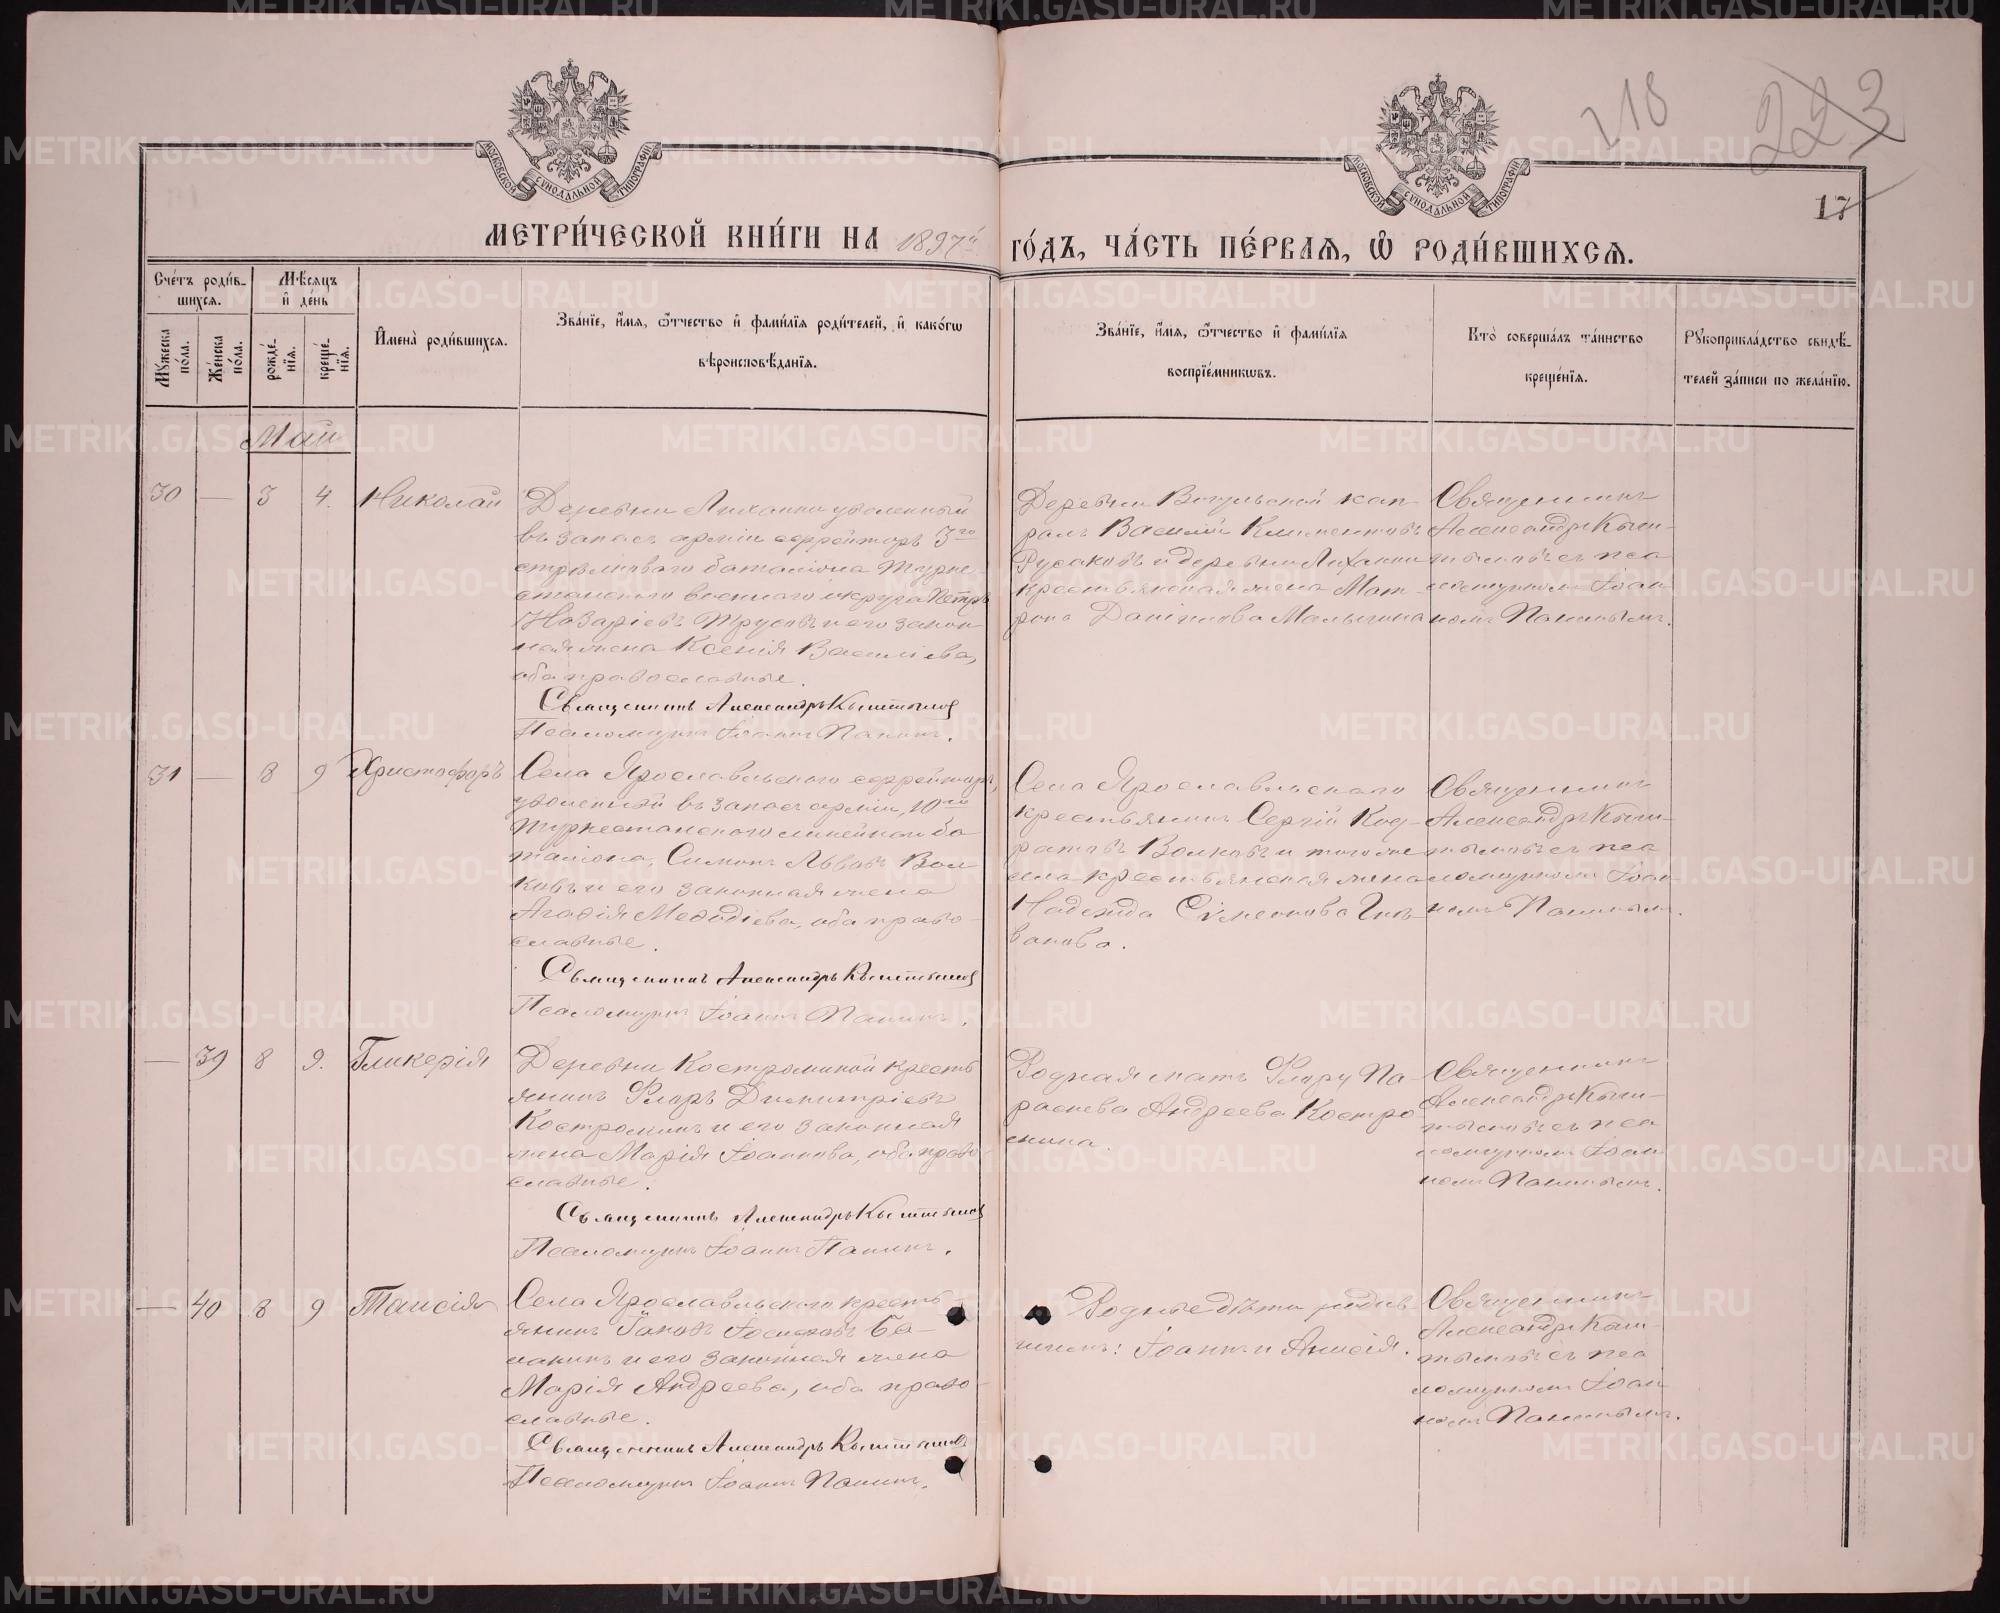 218
223
17
МОСКОВСКОЙ СѴНОДАЛЬНОЙ ТИПОГРАФІИ
МОСКОВСКОЙ СѴНОДАЛЬНОЙ ТИПОГРАФІИ
МЕТРИ́ЧЕСКОЙ КНИ́ГИ НА 1897й ГО́ДЪ, ЧА́СТЬ ПЕ́РВАЯ, Ѡ РОДИ́ВШИХСЯ.
Сче́тъ роди́в-
шихся.
Мꙋжеска по́ла.
Же́нска по́ла.
Мѣсяцъ
и҆ де́нь
рожде́-нїя.
креще́-нїя.
И҆мена̀ роди́вшихся.
Зва́нїе, и҆́мя, ѻ҆́тчество и҆ фами́лїя роди́телей, и҆ како́гѡ
вѣроисповѣ́данїя.
Зва́нїе, и҆́мя, ѻ҆́тчество и҆ фами́лїя
воспрїе́мникѡвъ.
Кто̀ соверша́лъ та́инство
креще́нїя.
Рꙋкоприкла́дство свидѣ́-
телей за́писи по жела́нїю.
Май
30 — 3 4. Николай
Деревни Лихании уволенный
въ запасъ арміи ефрейторъ 3го
стрѣлковаго баталіона Турке-
станского военного округа Петръ
Назаріевъ Трусовъ и его закон-
ная жена Ксенія Васильева,
оба православные.
Священникъ Александръ Кыштымов
Псаломщикъ Іоаннъ Панинъ.
Деревни Вогульской кап-
ралъ Василій Климентовъ
Русаковъ и деревни Лихании
крестьянская жена Мат-
рона Даніилова Малыгина
Священникъ
Александръ Кыш-
тымовъ съ пса
ломщикомъ Іоан-
номъ Панинымъ.
31 — 8 9 Христофоръ
Села Ярославльского ефрейторъ,
уволенный въ запасъ арміи, 10го
Туркестанского линейном ба
таліона, Симонъ Львовъ Вол
ковъ и его законная жена
Агафія Меѳодіева, оба право-
славные.
Священникъ Александръ Кыштымов
Псаломщикъ Іоаннъ Панинъ.
Села Ярославльскаго
крестьянинъ Сергій Код-
ратовъ Волковъ и того же
села крестьянская жена
Надежда Сѵмеонова
ванова.
Священникъ
Александръ Кыш-
тымовъ съ пса
ломщикомъ Іоан-
номъ Панинымъ.
— 39 8 9. Гликерія
Деревни Костроминой кресть
янинъ Флоръ Димитріевъ
Костроминъ и его законная
жена Марія Іоаннова, оба право-
славные.
Священникъ Александръ Кыштымов
Псаломщикъ Іоаннъ Панинъ.
Родная мать Флору Па-
раскева Андреева Костро
мина.
Священникъ
Александръ Кыш-
тымовъ съ пса
ломщикомъ Іоан
номъ Панинымъ.
— 40 8 9 Таисія
Села Ярославльского кресть
янинъ Іаковъ Іосифовъ Ба-
лакинъ и его законная жена
Марія Андреева, оба право-
славные.
Священникъ Александръ Кыштымовъ
Псаломщикъ Іоаннъ Панинъ.
Родные дѣти родив
шихъ: Іоаннъ и Анисія.
Священникъ
Александръ Кыш-
тымовъ съ пса
ломщикомъ Іоан
номъ Панинымъ.
METRIKI.GASO-URAL.RU